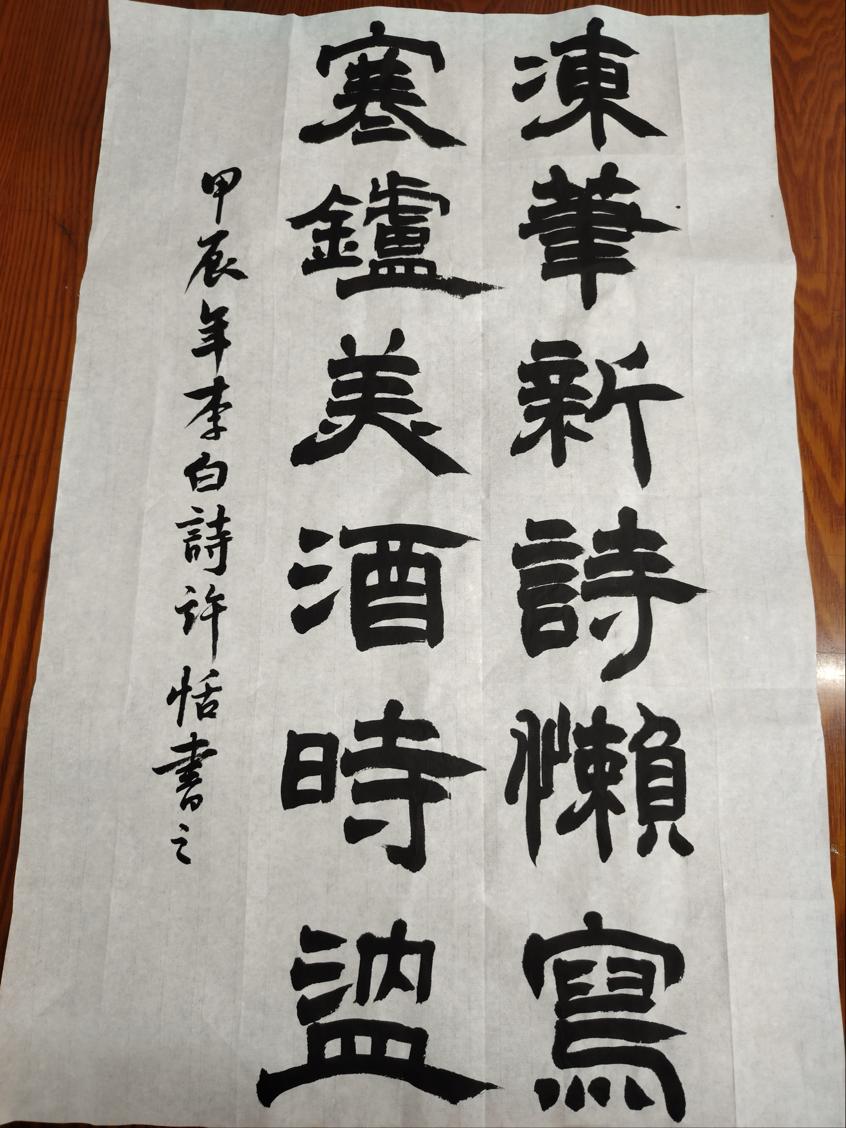 凍筆新詩懶寫
寒鑪美酒時溫
甲辰年李白詩許恬書之